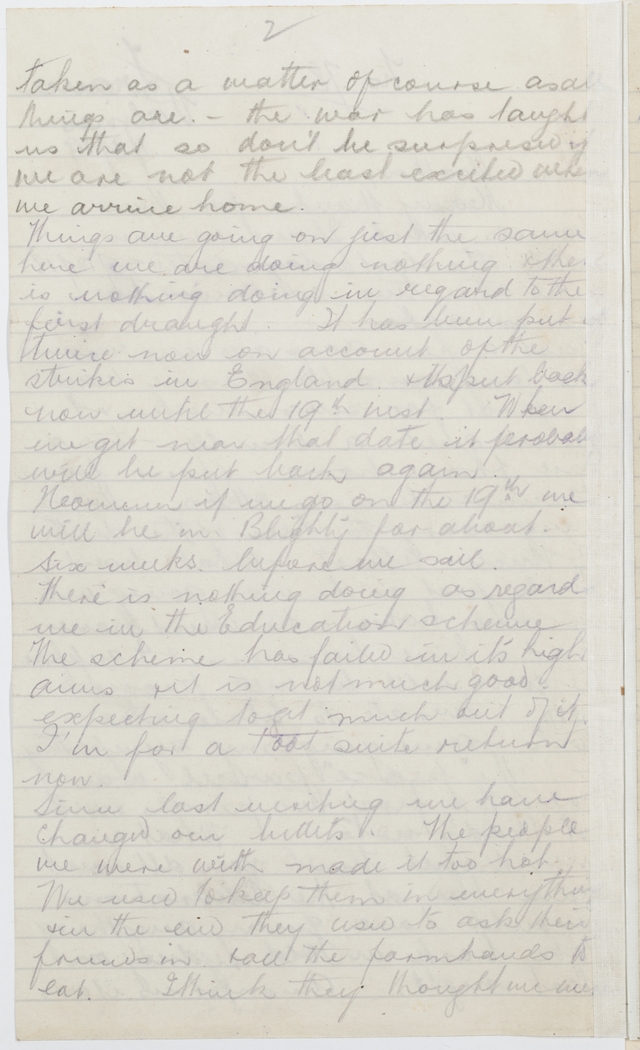 2
taken as a matter of course as al
things are. - the war has taught
us that so don't be surprised if
we are not the least excited when
we arrive home.
Things are going on just the same
here we are doing nothing & the
is nothing doing in regard to the
first draught. It has been put
twice now on account of the
strikes in England. & its put back
now until the 19th inst. When
we get near that date it probab
will be put back again.
However if we go on the 19th we
will be in Blighty for about
six weeks before we sail.
There is nothing doing as regard
me in the Education scheme
The scheme has failed in it's high
aims & it is not much good
expecting to get much out of it.
I'm for a Toot suite return
now.
Since last writing we have
changed our billets. The people
we were with made it too hot.
We used to keep them in everythin
& in the end they used to ask their
friends in & all the farmhands to
eat. I think they thought we we